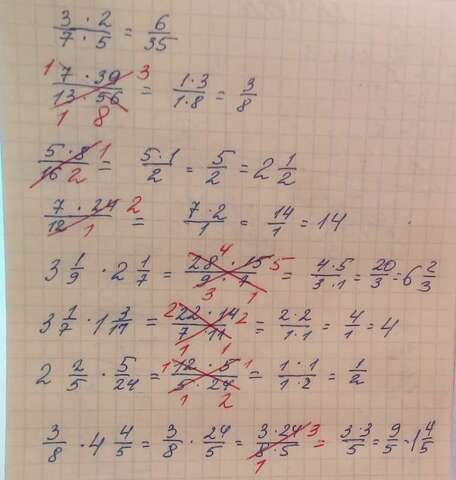 3 · 2 / 7 · 5 = 6/35
1 7 · 39 3 / 13 · 56 1 8 = 1 · 3 / 1 · 8 = 3/8
5 · 8 1 / 16 2 = 5 · 1 / 2 = 5/2 = 2 1/2
7 · 24 2 / 12 1 = 7 · 2 / 1 = 14/1 = 14
3 1/9 · 2 1/7 = 4 28 · 15 5 / 9 · 7 3 1 = 4 · 5 / 3 · 1 = 20/3 = 6 2/3
3 1/7 · 1 3/11 = 2 22 · 14 2 / 7 · 11 1 1 = 2 · 2 / 1 · 1 = 4/1 = 4
2 2/5 · 5/24 = 1 12 · 5 1 / 5 · 24 1 2 = 1 · 1 / 1 · 2 = 1/2
3/8 · 4 4/5 = 3/8 · 24/5 = 3 · 24 3 / 8 · 5 1 = 3 · 3 / 5 = 9/5 = 1 4/5